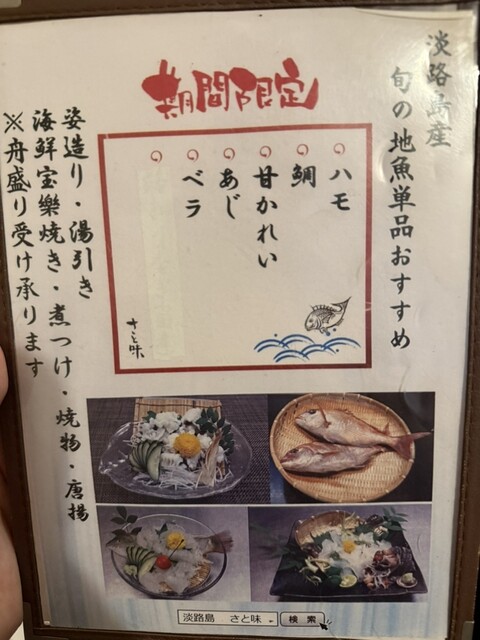 淡路島産
旬の地魚単品おすすめ
期間限定
ハモ
鯛
甘かれい
あじ
ベラ
さと味
姿造り・湯引き
海鮮宝樂焼き・煮つけ・焼物・唐揚
※舟盛り受け承ります
淡路島 さと味
検索